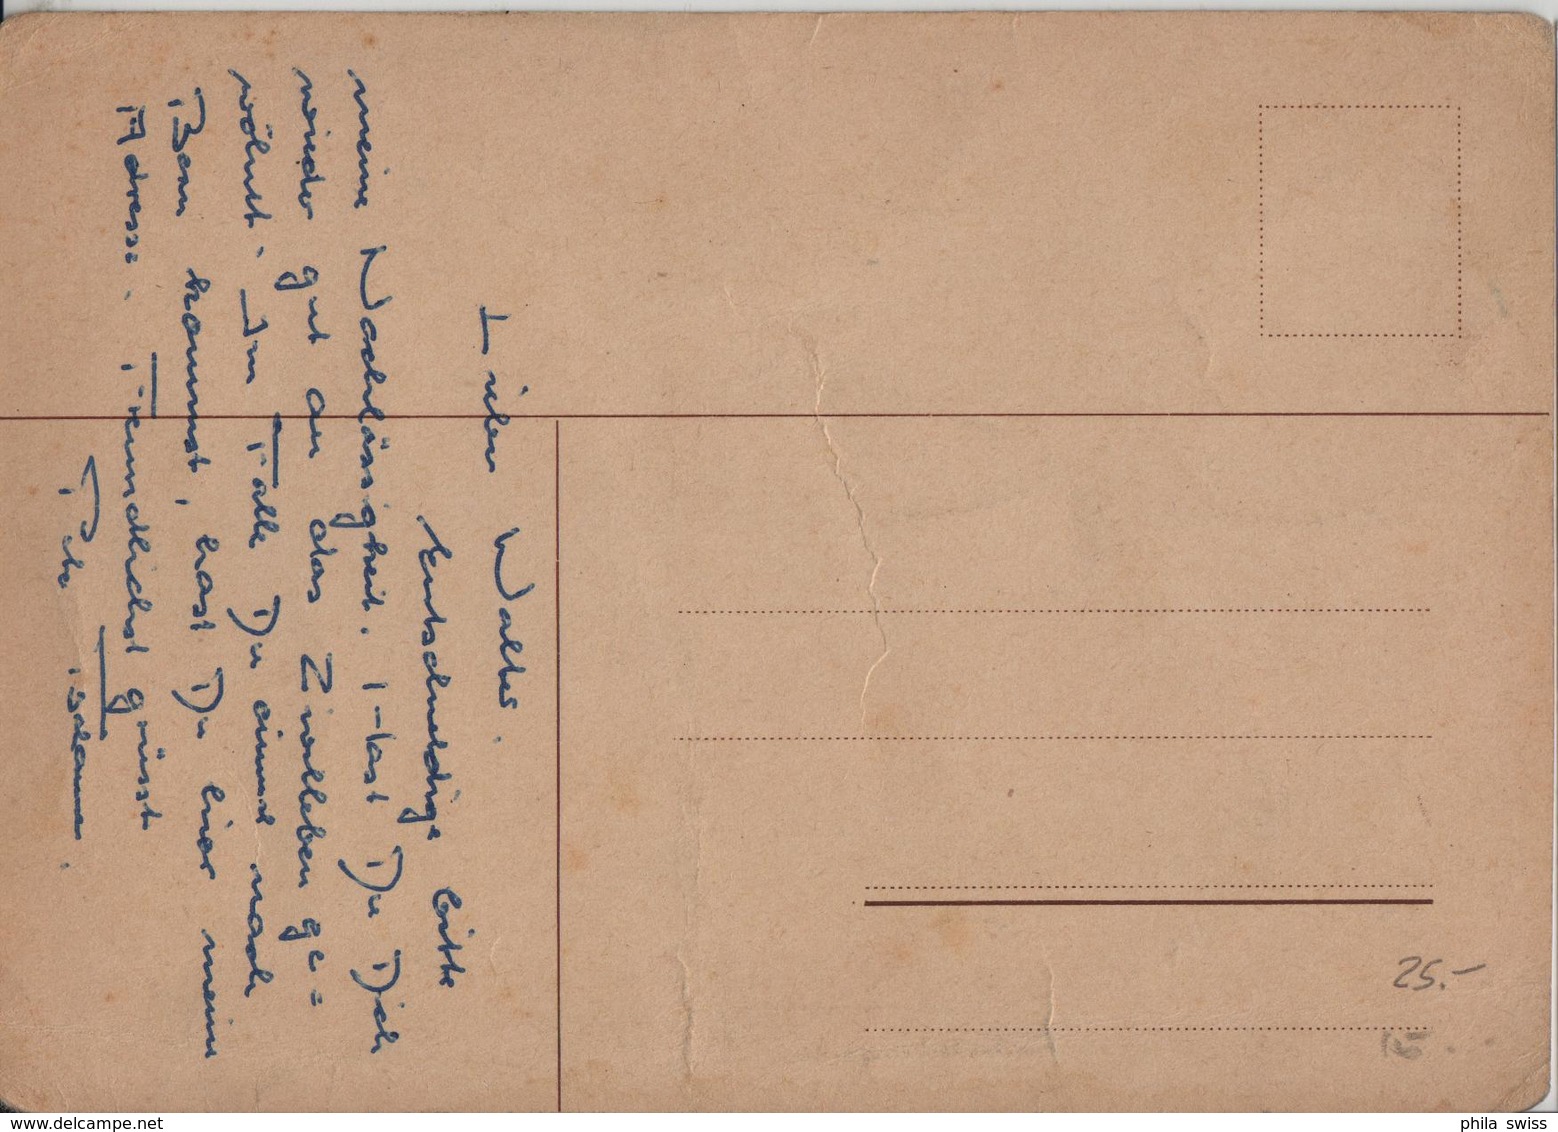 Lieber Walter.
Entschuldige bitte
meine Nachlässigkeit. Hast Du Dich
wieder gut an das Zivilleben ge=
wöhnt. Im Falle Du einmal nach
Bern kommst, hast Du hier meine
Adresse. Freundlichst grüsst
25.-
15
phila swiss